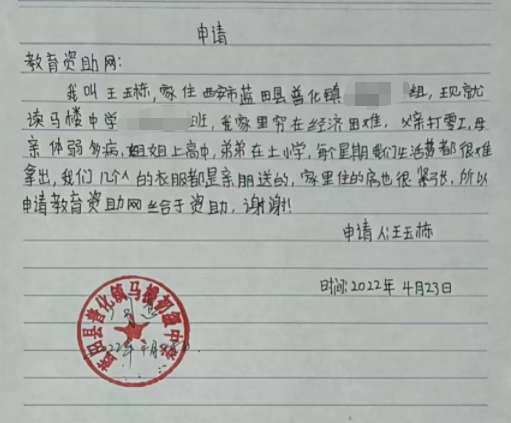 申请
教育资助网:
我叫王玉栋,家住西安市蓝田县普化镇 组,现就
读马楼中学 班,我家里穷在经济困难,父亲打零工,母
亲体弱多病,姐姐上高中,弟弟在上小学,每个星期我们生活费都很难
拿出,我们几个人的衣服都是亲朋送的,家里住的房也很紧张,所以
申请教育资助网给于资助,谢谢!
申请人:王玉栋
时间:2022年4月23日
蓝田县普化镇马楼初级中学
2022年4月